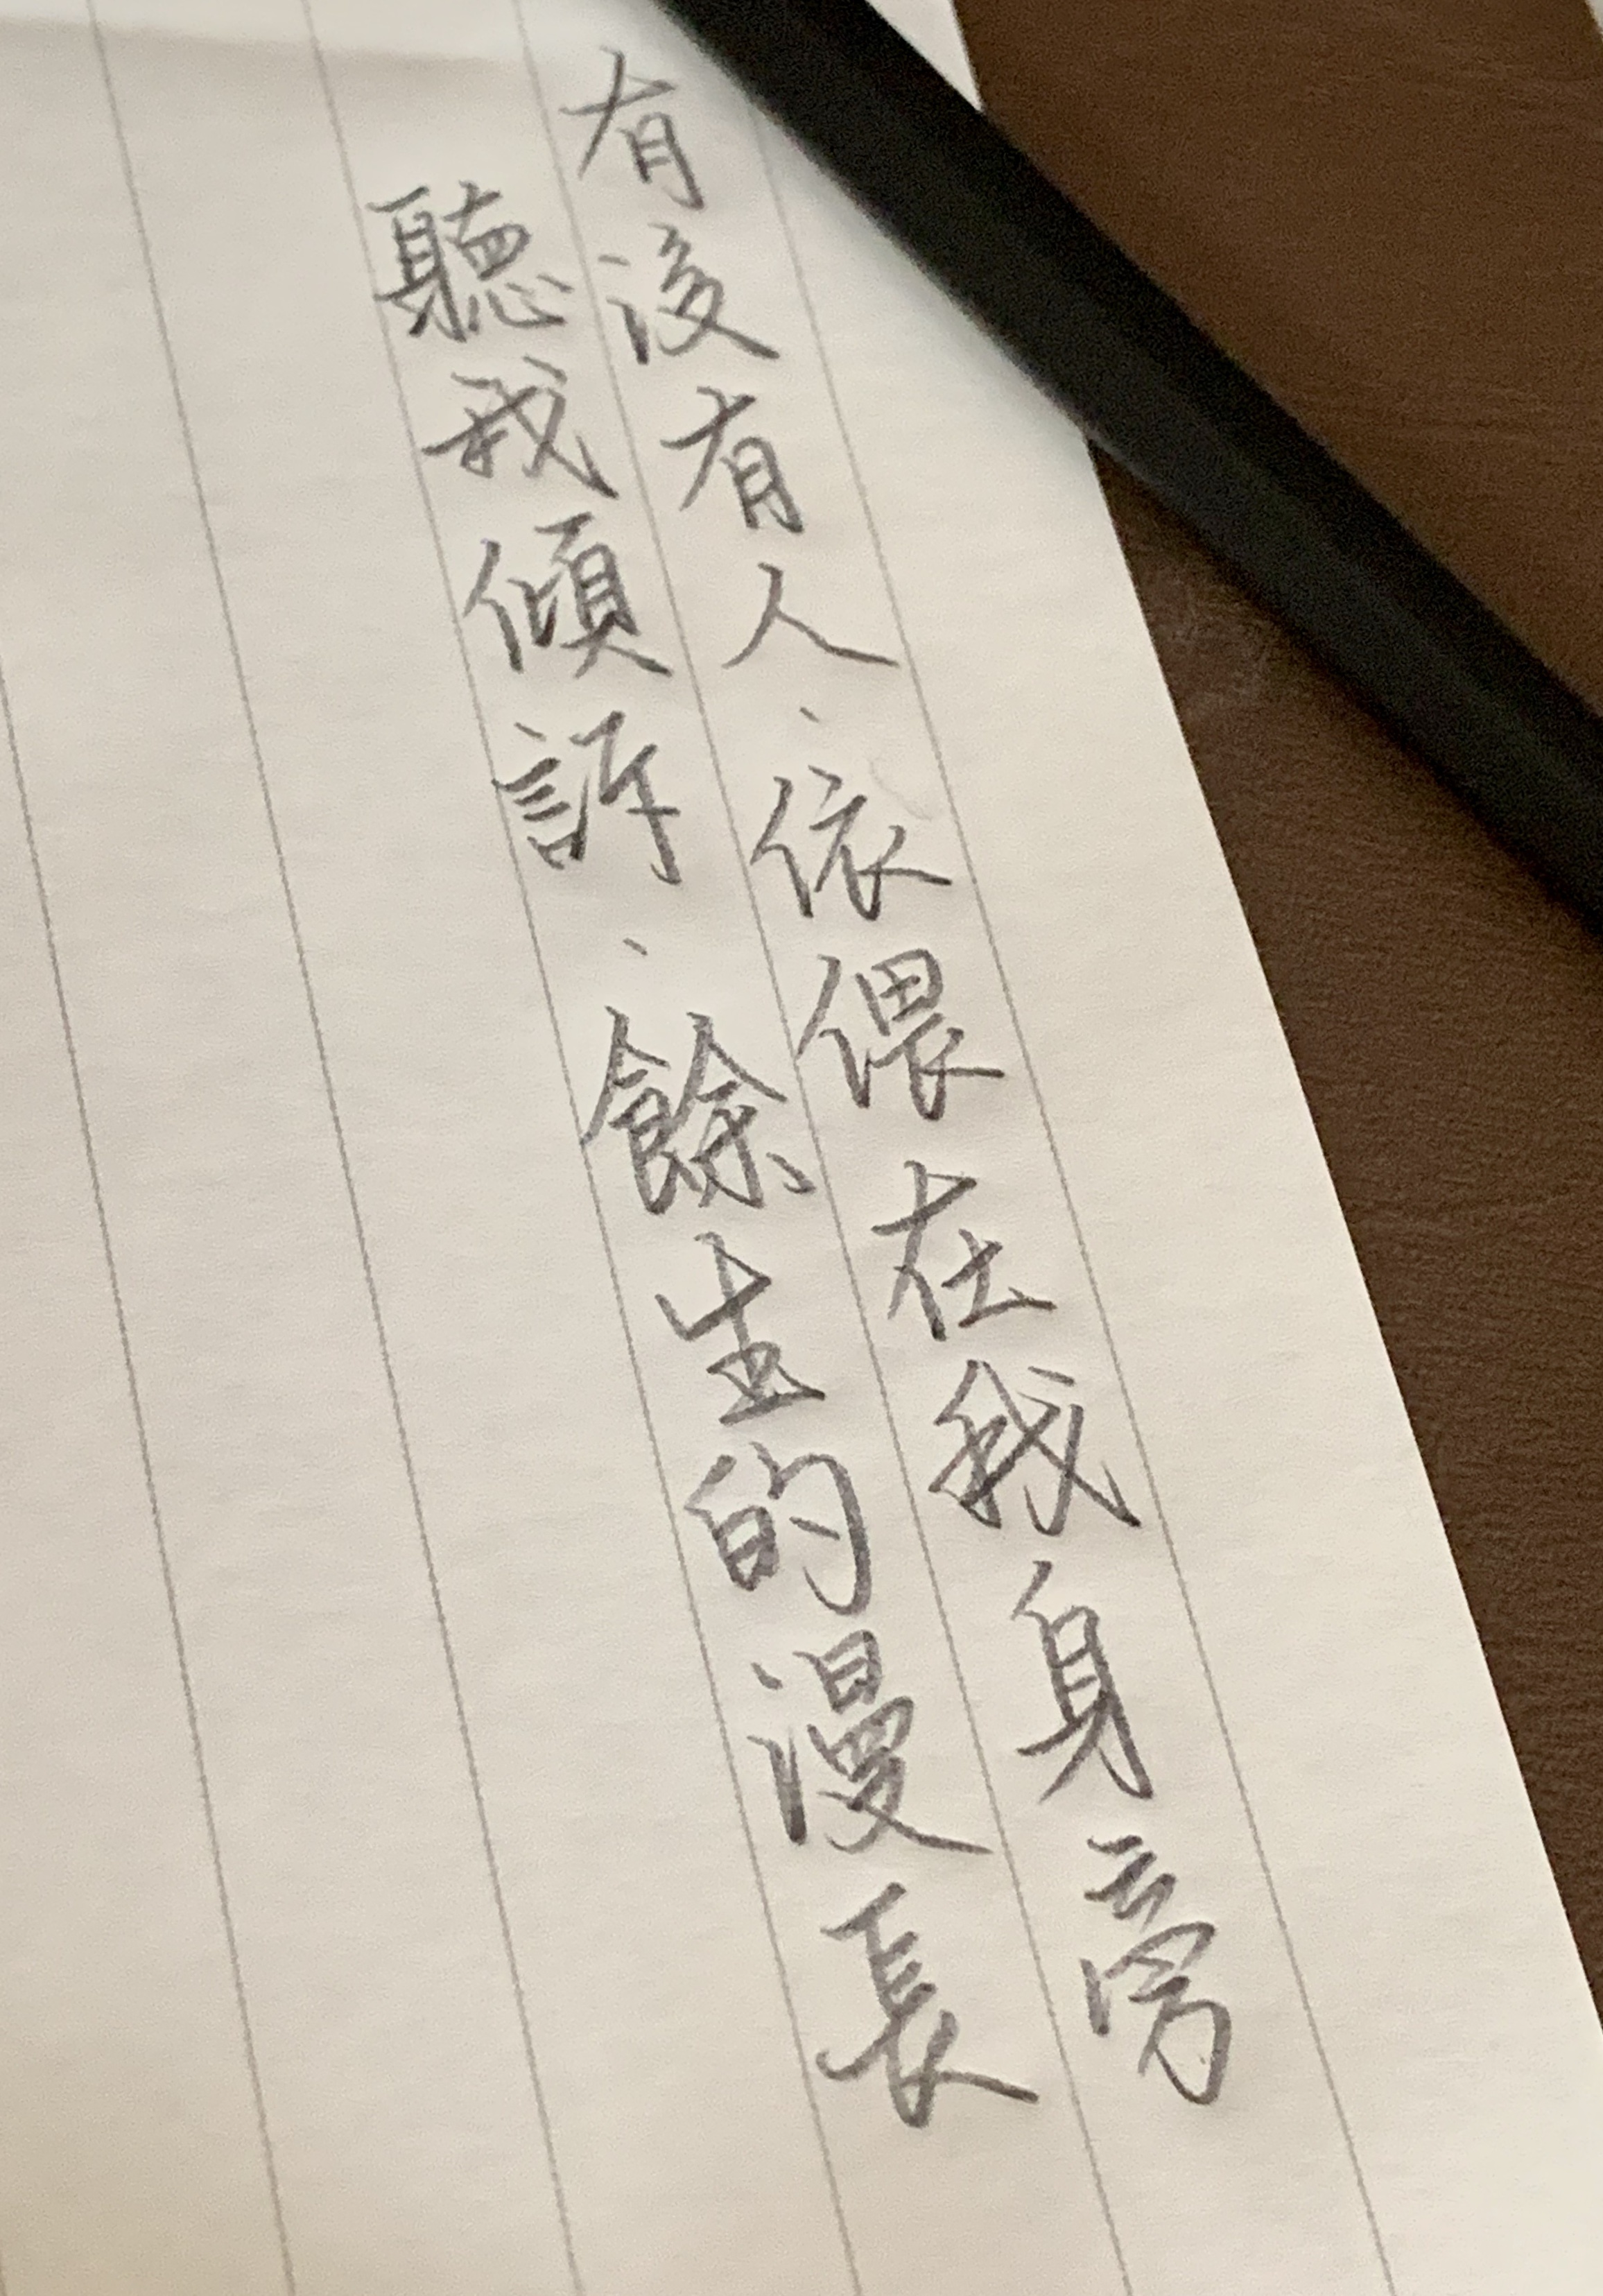 有沒有人、依偎在我身旁
聽我傾訴、餘生的漫長